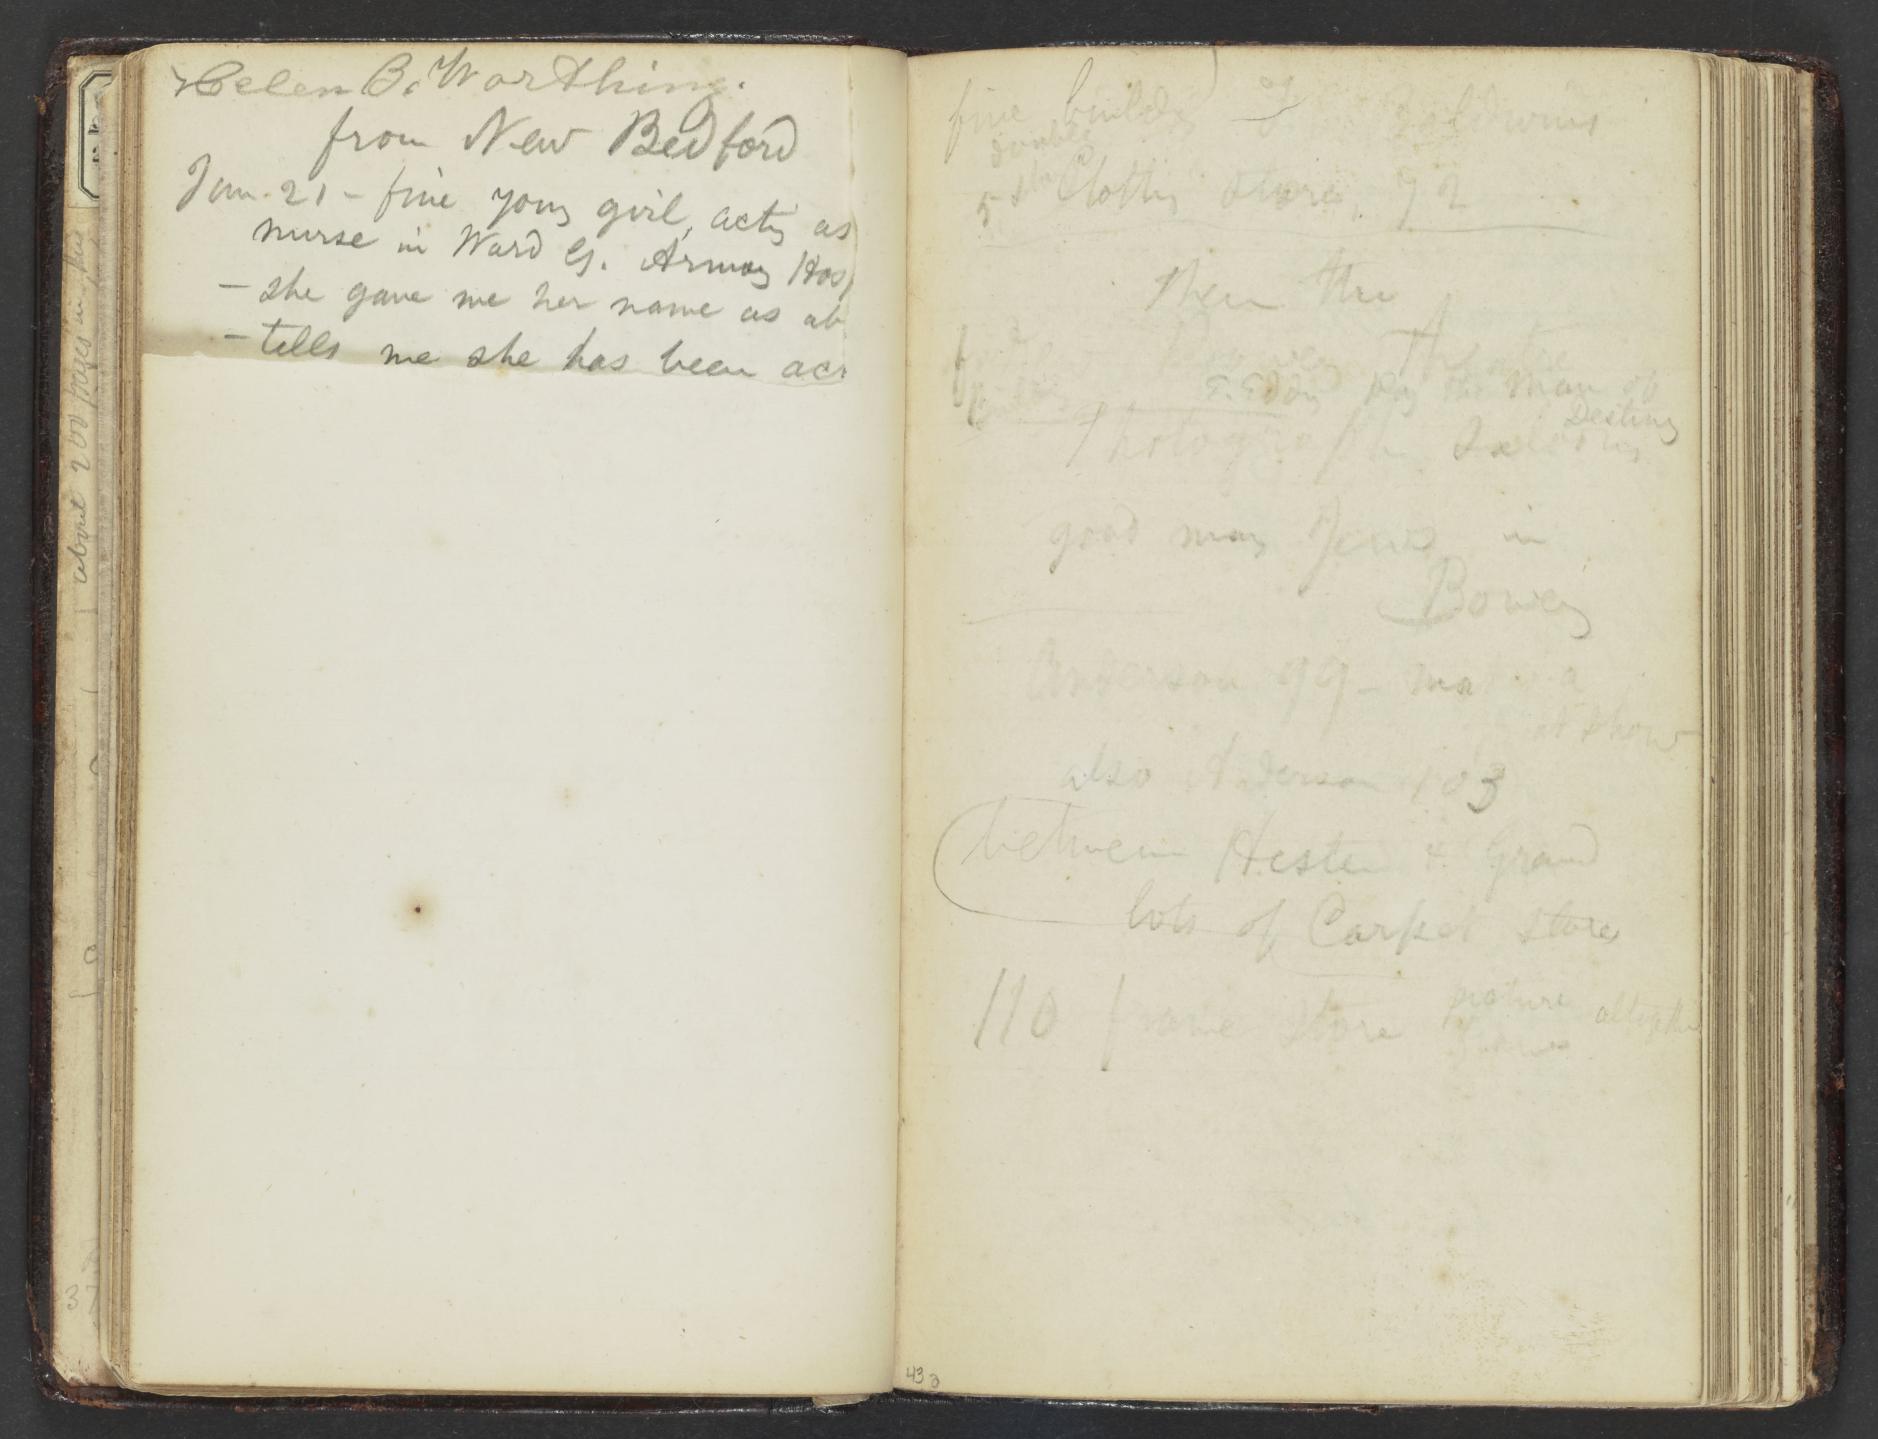 Helen B. Worthing.
from New Bedford
Jan. 21 - fine young girl, acts as
nurse in Ward G. Armory Hos
- she gave me her name as ab
- tells me she has been acr
about 200 pages in this
37
fine building of Baldwins
double
5 st Clothing store, 92
Then the
Bowery Theatre
E. Eddy Play the Man of
Destiny
Photograph Saloons
good many Jews in
Bowery
Anderson 99 -
at show
also Anderson 103
between Hester & Grand
lots of Carpet stores
110 frame store picture
43